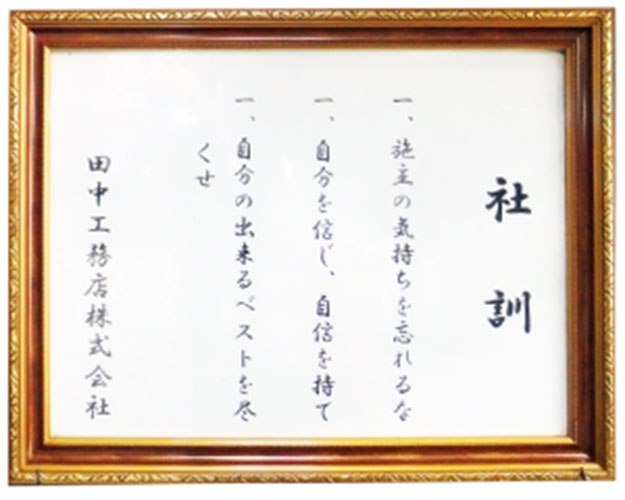 社訓
一、施主の気持ちを忘れるな
一、自分を信じ、自信を持て
一、自分の出来るベストを尽
くせ
田中工務店株式会社